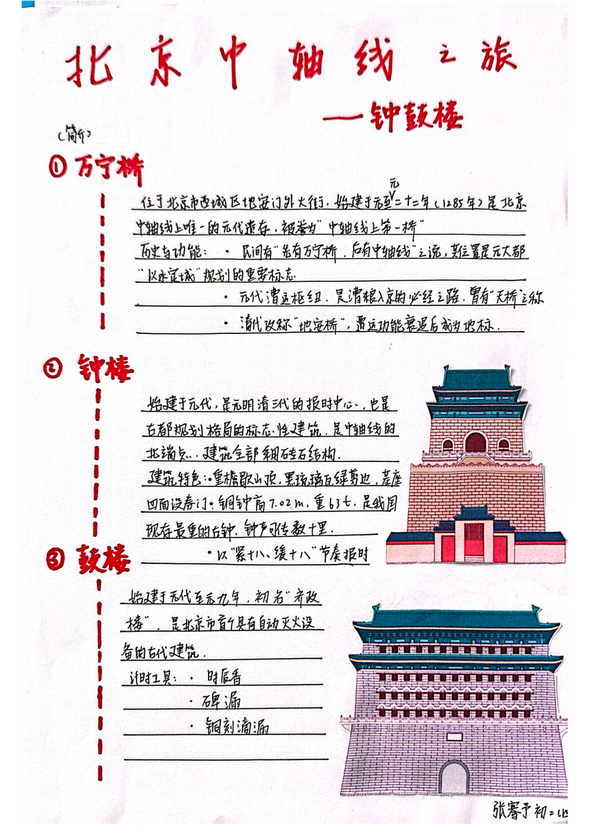 北京中轴线之旅
——钟鼓楼
(简介)
① 万宁桥
位于北京市西城区地安门外大街,始建于元至元二十二年(1285年)是北京
中轴线上唯一的元代遗存,被誉为"中轴线上第一桥"
历史与功能:·民间有"先有万宁桥,后有中轴线"之说,其位置是元大都
"以水定城"规划的重要标志
·元代漕运枢纽,是漕粮入京的必经之路,曾有"天桥"之称
·清代改称"地安桥",漕运功能衰退后成为地标.
② 钟楼
始建于元代,是元明清三代的报时中心,也是
古都规划格局的标志性建筑,是中轴线的
北端点.建筑全部采用砖石结构.
建筑特色:重檐歇山顶,黑琉璃瓦绿剪边,基座
四面设券门·铜钟高7.02m,重63t,是我国
现存最重的古钟,钟声可传数十里.
·以"紧十八、缓十八"节奏报时
③ 鼓楼
始建于元代至元九年,初名"齐政
楼",是北京市首个具有自动灭火设
备的古代建筑.
计时工具:·时辰香
·碑漏
·铜刻滴漏
张馨予 初二